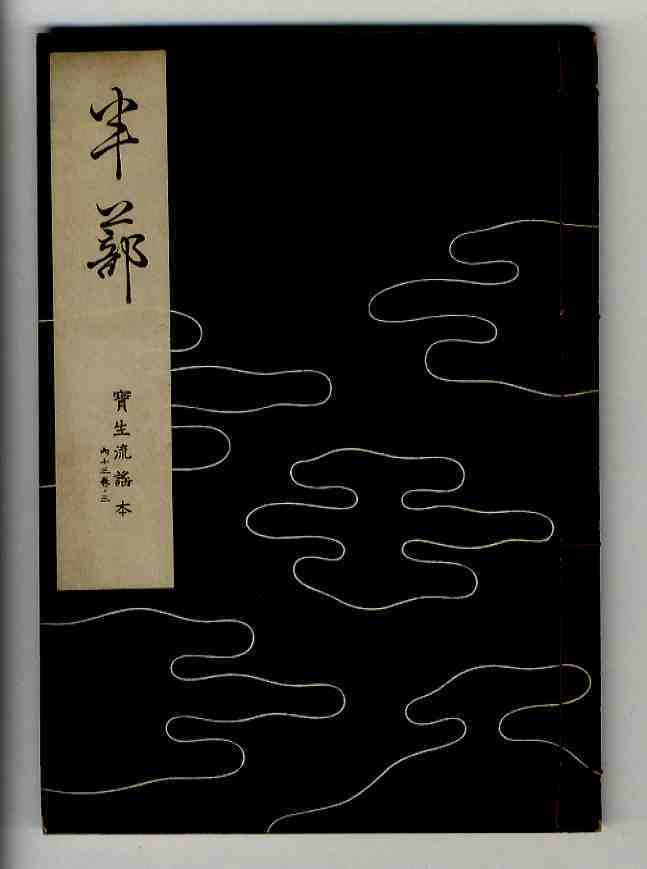 半蔀
寶生流謠本
内十三巻ノ三